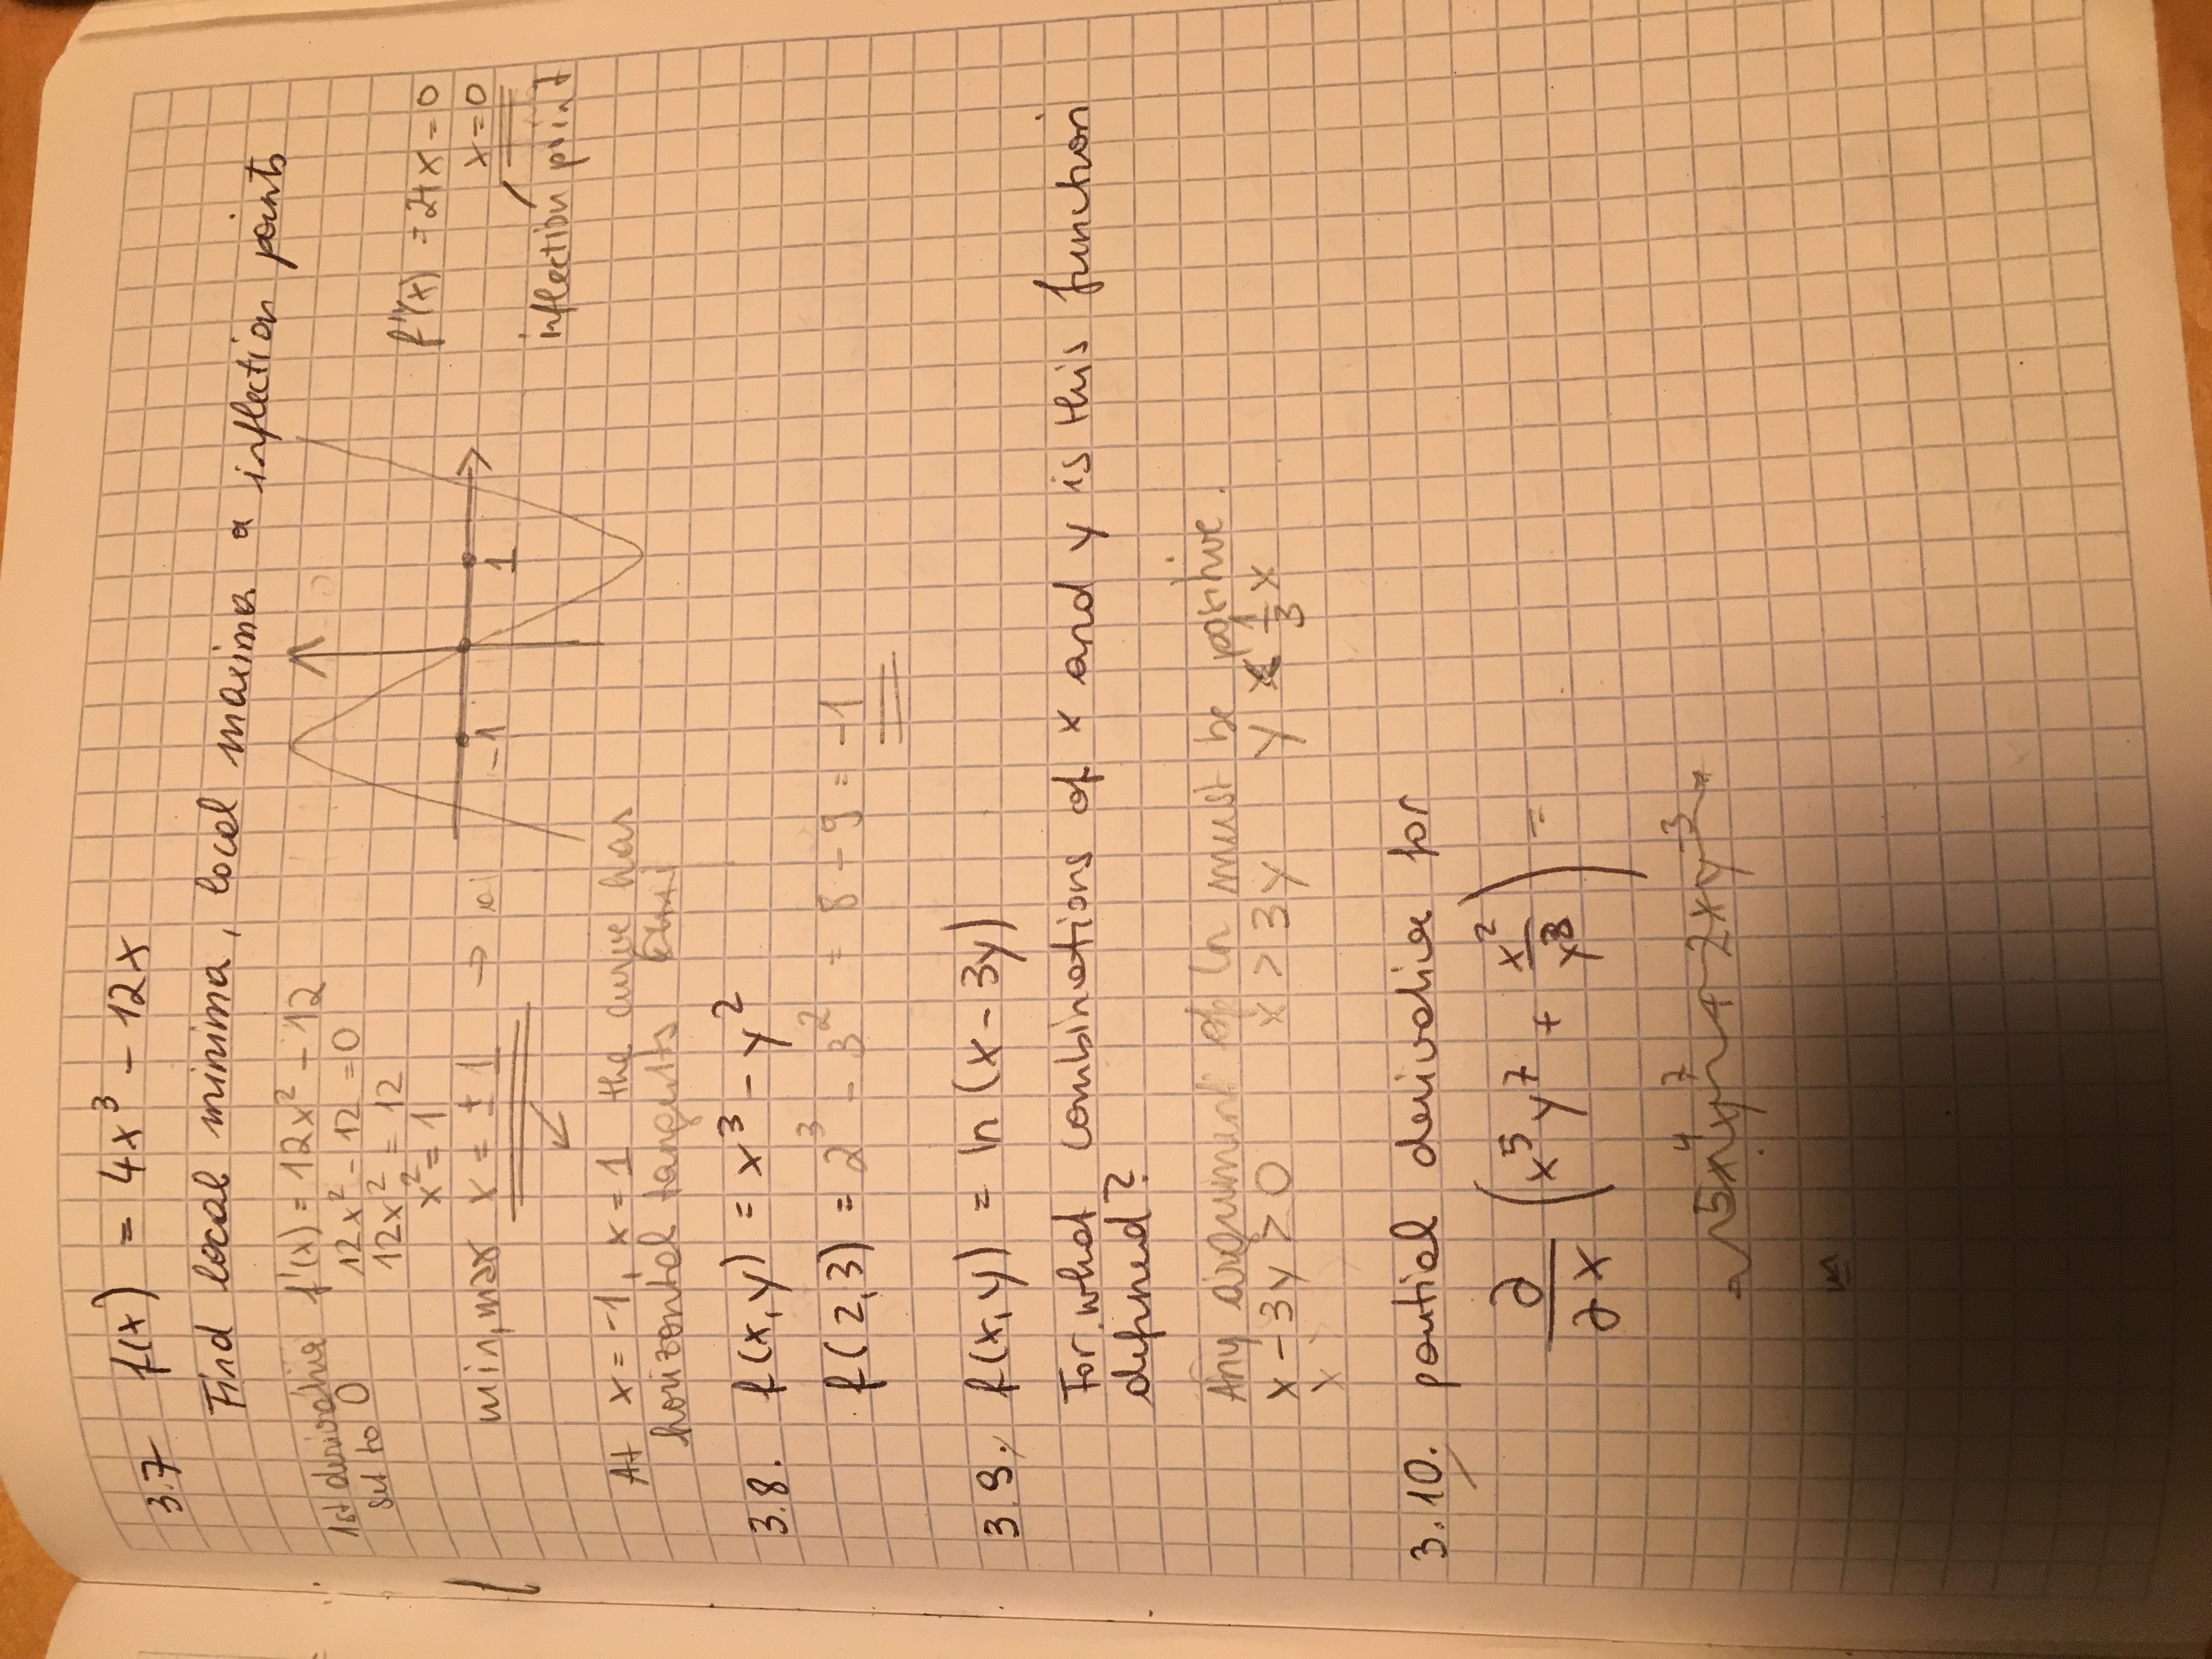 3.7 f(x) = 4x³ - 12x
Find local minima, local maxima a inflection points
1st derivative f'(x) = 12x² - 12
set to 0 12x² - 12 = 0
12x² = 12
x² = 1
min, max x = ± 1 →
-1 1
f''(x) = 24x = 0
x = 0
inflection point
At x = -1, x = 1 the curve has
horizontal tangents
3.8. f(x,y) = x³ - y²
f(2,3) = 2³ - 3² = 8 - 9 = -1
3.9. f(x,y) = ln (x - 3y)
For what combinations of x and y is this function
defined?
Any argument of ln must be positive.
x - 3y > 0 x > 3y y < 1/3 x
x
3.10. partial derivative for
∂/∂x (x⁵y⁷ + x²/y³) =
= 5x⁴y⁷ + 2xy⁻³
=